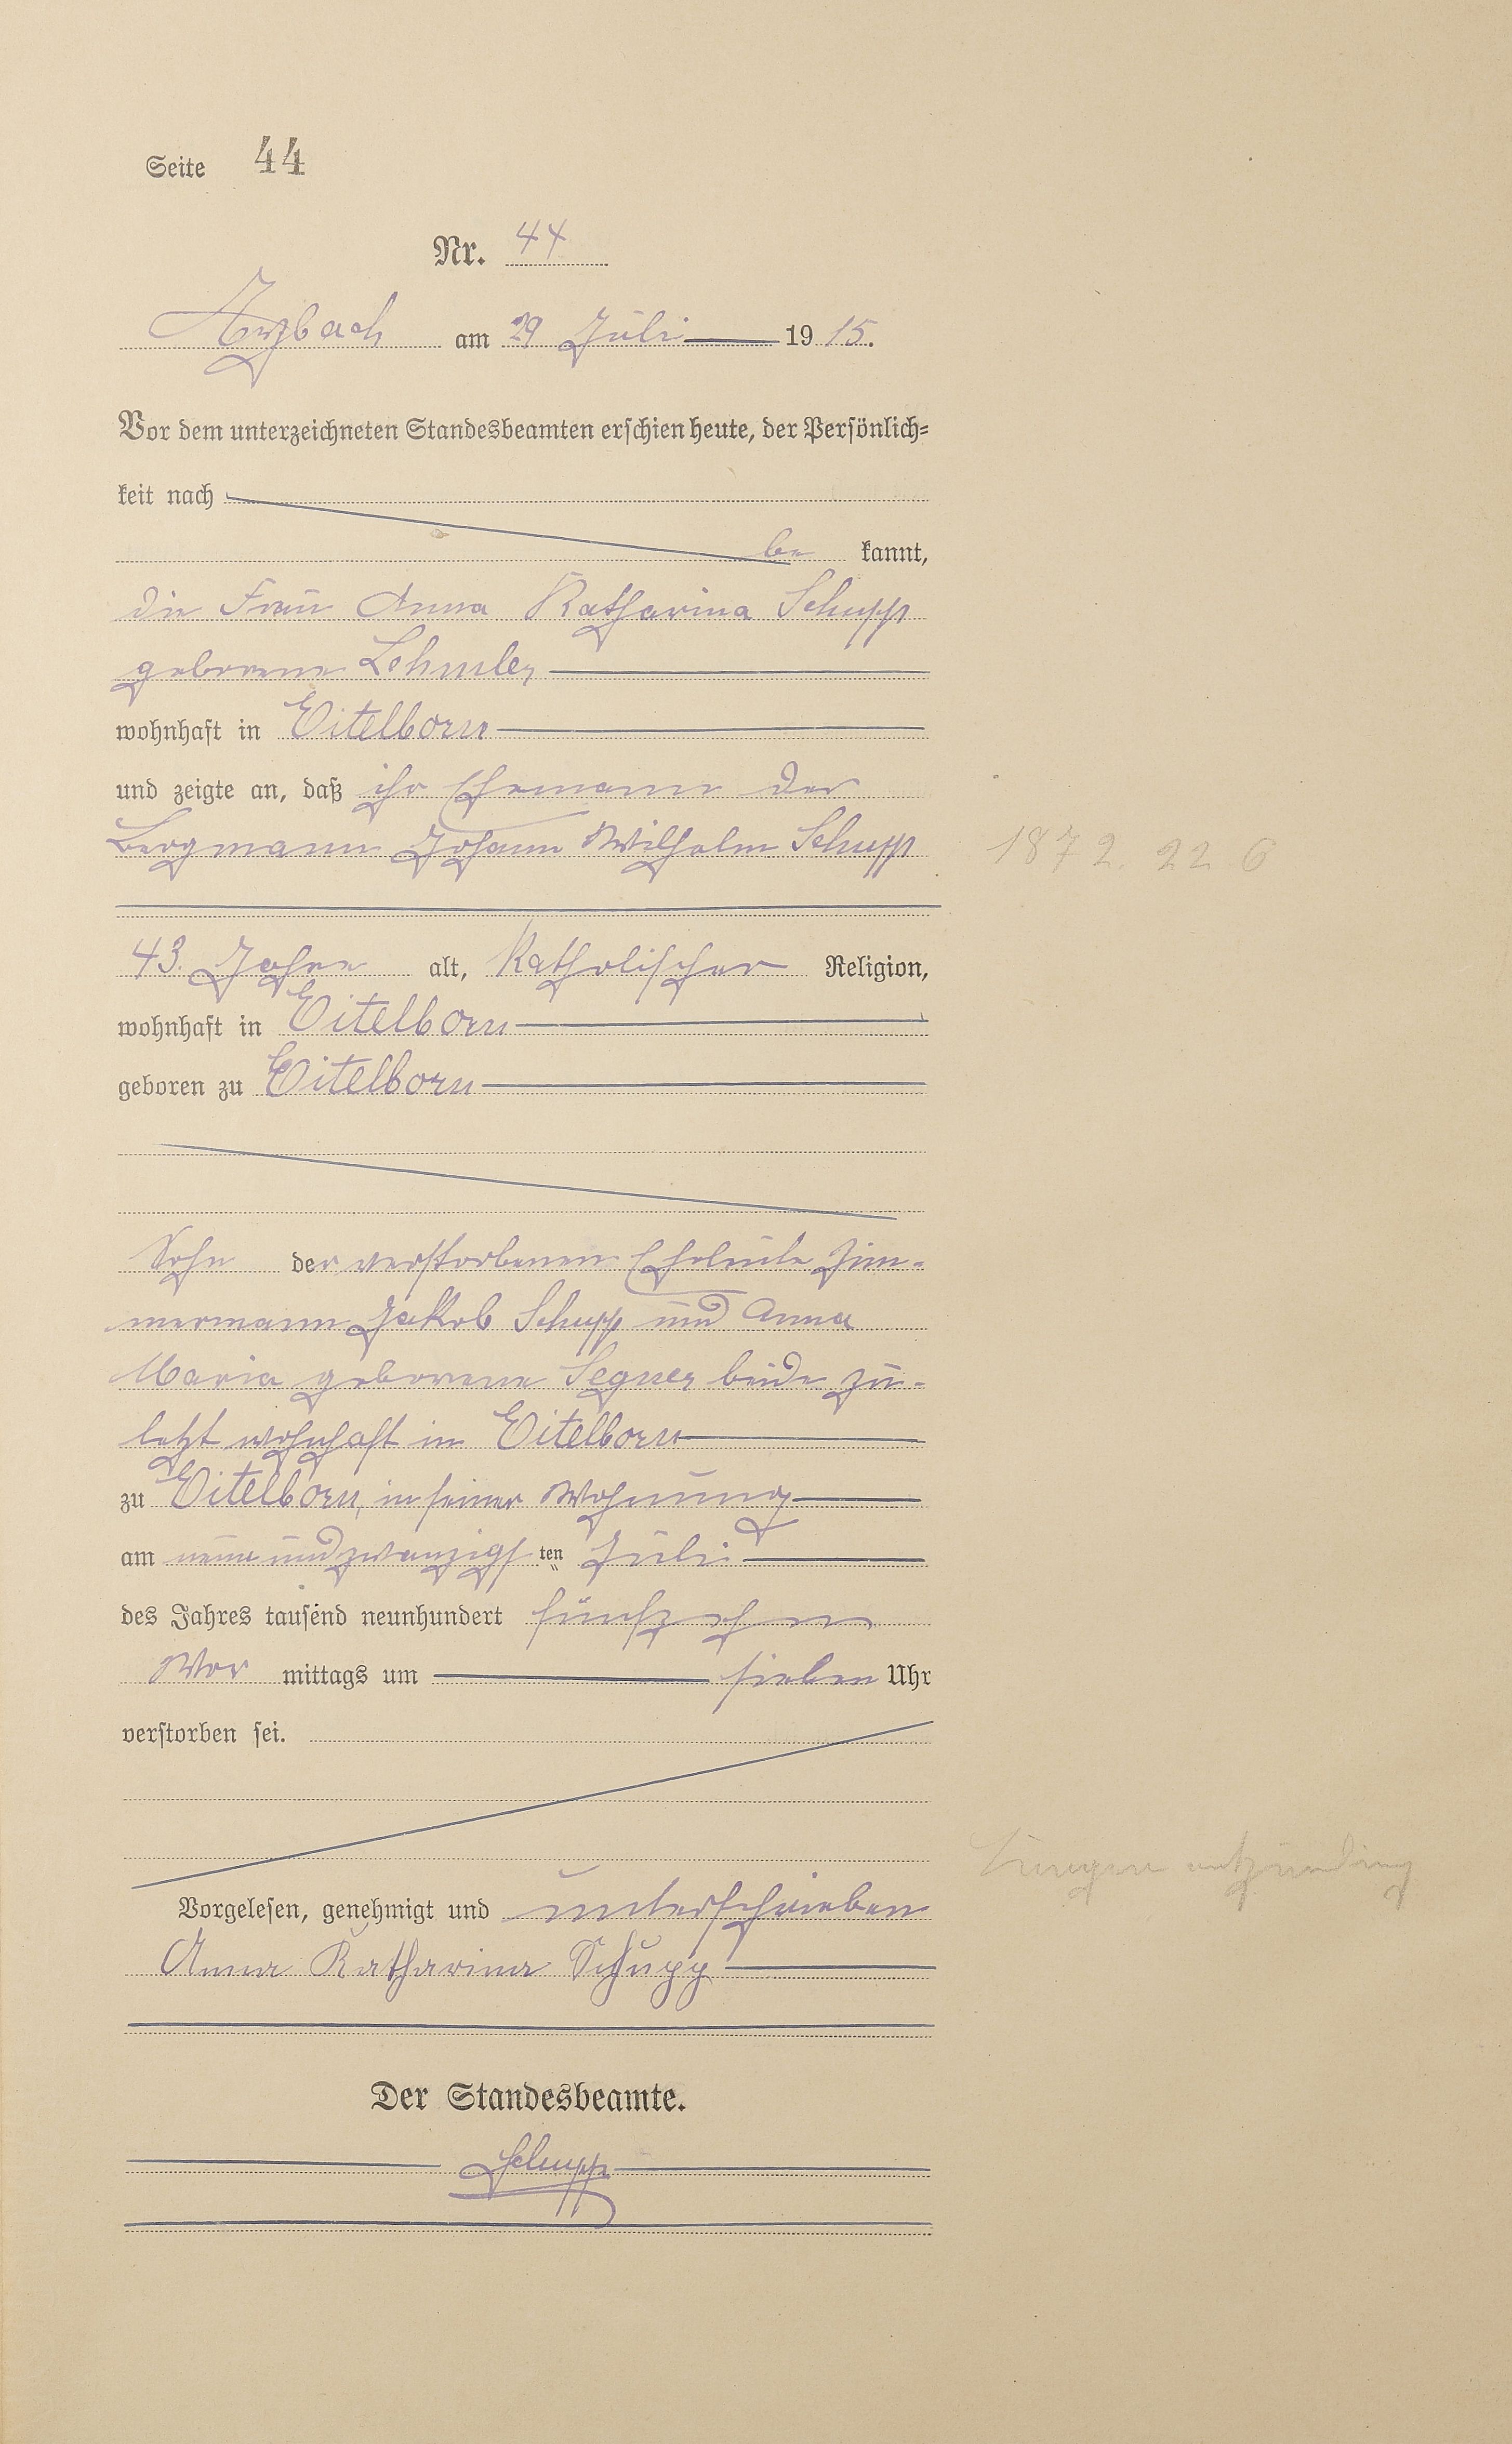 Seite 44
Nr. 44
Arzbach am 29 Juli 1915.
Vor dem unterzeichneten Standesbeamten erschien heute, der Persönlich=
keit nach
be kannt,
die Frau Anna Katharina Schupp
geborene Lehmler
wohnhaft in Eitelborn
und zeigte an, daß ihr Ehemann der
Bergmann Johann Wilhelm Schupp
1872. 22 6
43. Jahre alt, Katholischer Religion,
wohnhaft in Eitelborn
geboren zu Eitelborn
Sohn der verstorbenen Eheleute Zim-
mermann Jakob Schupp und Anna
Maria geborene Segner beide zu-
letzt wohnhaft in Eitelborn
zu Eitelborn, in seiner Wohnung
am neun und zwanzigsten Juli
des Jahres tausend neunhundert fünfzehn
Vor mittags um sieben Uhr
verstorben sei.
Lungen entzündung
Vorgelesen, genehmigt und unterschrieben
Anna Katharina Schupp
Der Standesbeamte.
Schupp